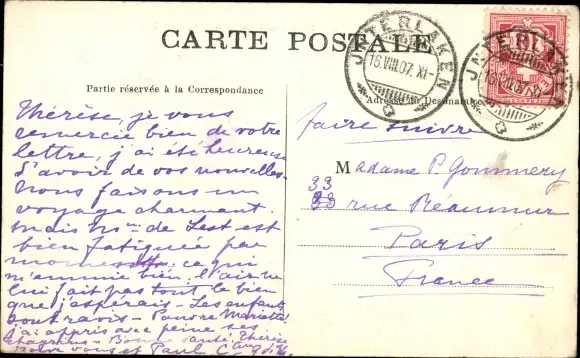 CARTE POSTALE
INTERLAKEN
16.VIII.07. XI-
INTERLAKEN
16.VIII.07
Partie réservée à la Correspondance
Adresse du Destinataire
Thérèse, je vous
remercie bien de votre
lettre, j'ai été heureuse
d'avoir de vos nouvelles
nous faisons un
voyage charmant
mais Mme de Lest est
bien fatiguée par
moments ce qui
m'ennuie bien. l'air ne
lui fait pas tout le bien
que j'espérais - Les enfants
sont ravis - Pauvre Mariette
j'ai appris avec peine ses
chagrins - Bonne santé Thérèse
pour vous et Paul
faire suivre
Madame P. Gommery
33
33 rue Réaumur
Paris
France